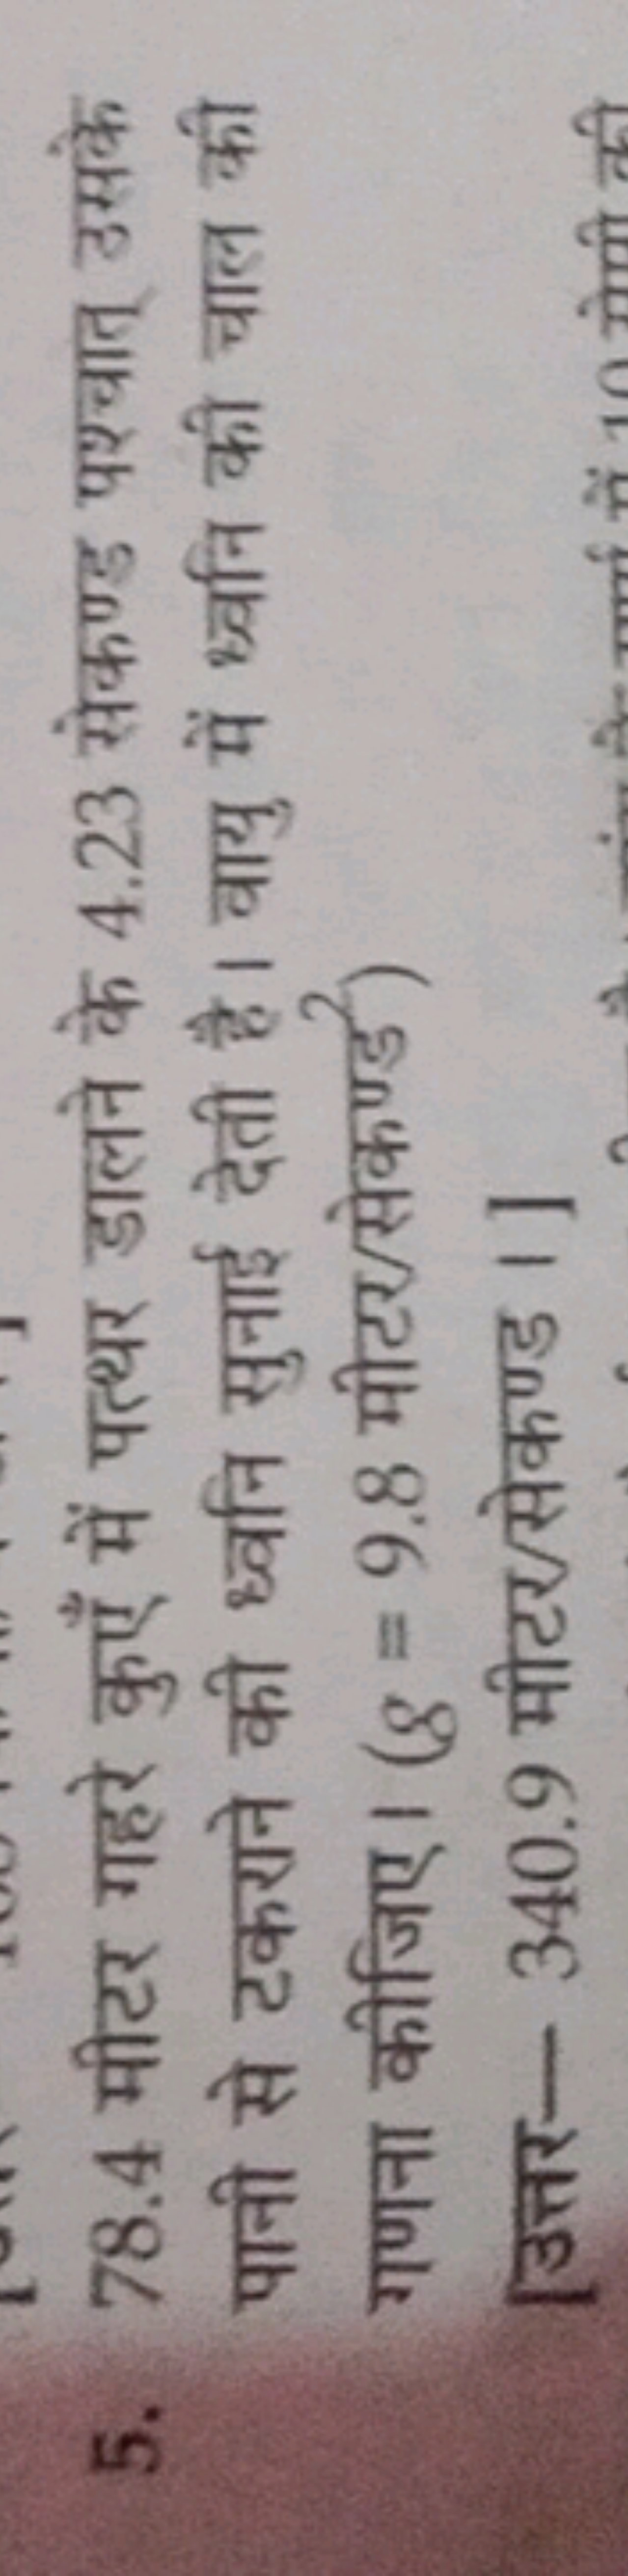 5. 78.4 मीटर गहरे कुएँ में पत्थर डालने के 4.23 सेकण्ड पश्चात् उसके
पानी से टकराने की ध्वनि सुनाई देती है। वायु में ध्वनि की चाल की
गणना कीजिए। (g = 9.8 मीटर/सेकण्ड²)
[उत्तर— 340.9 मीटर/सेकण्ड ।]
में 10 सेमी की